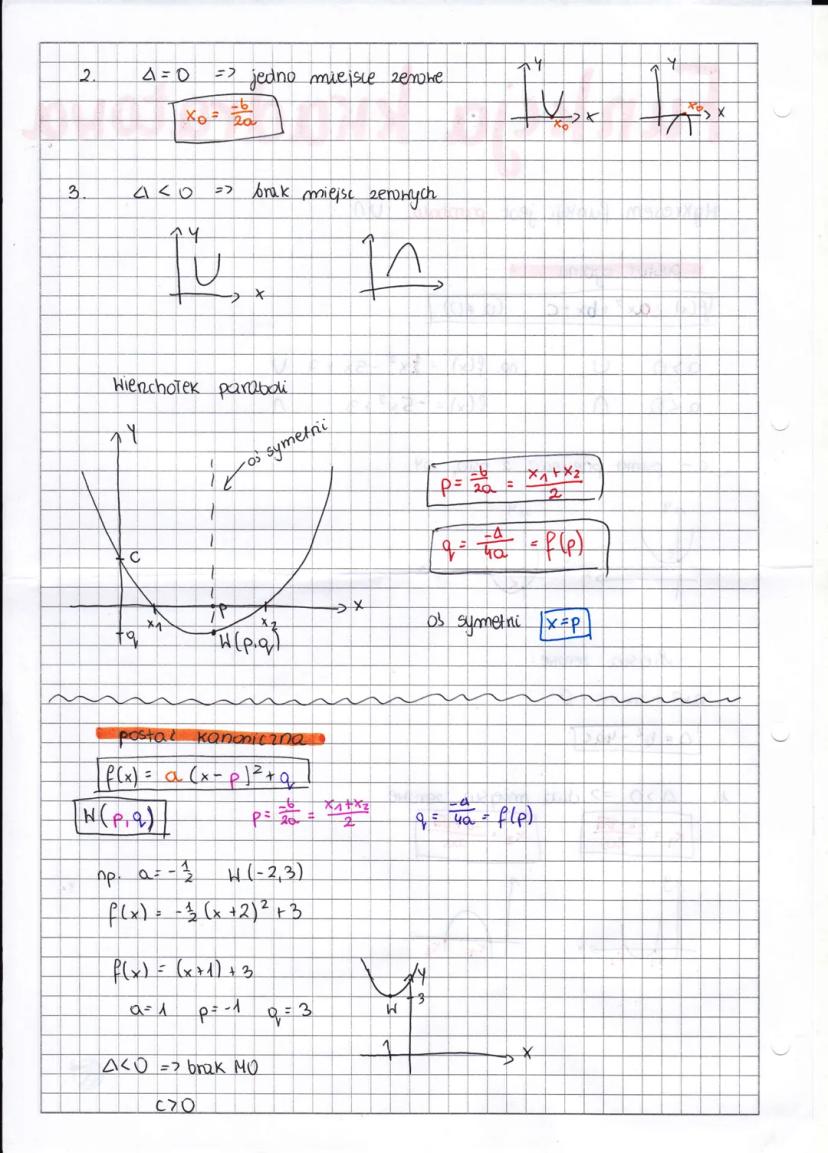 2. Δ = 0 => jedno miejsce zerowe
x₀ = -b/2a
Y
X
x₀
Y
X
x₀
3. Δ < 0 => brak miejsc zerowych
Y
X
Wierzchołek paraboli
Y
oś symetrii
C
p
X
x₁
x₂
q
W(p,q)
p = -b/2a = x₁+x₂/2
q = -Δ/4a = f(p)
oś symetrii x=p
postać kanoniczna
f(x) = a(x-p)²+q
W(p,q) p = -b/2a = x₁+x₂/2 q = -Δ/4a = f(p)
np. a = -1/2 W(-2,3)
f(x) = -1/2(x+2)²+3
f(x) = (x+1)+3
a=1 p=-1 q=3
Y
3
W
1
X
Δ<0 => brak M0
c>0